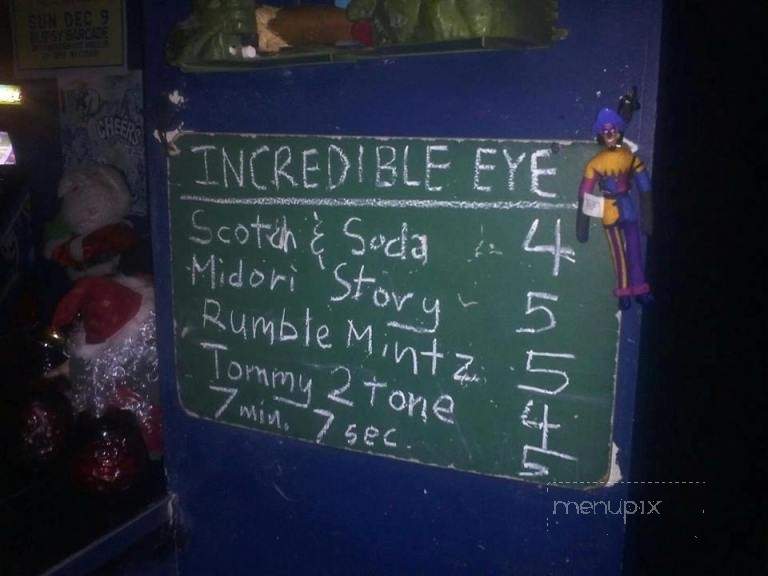 SUN DEC 9
CHEERS
INCREDIBLE EYE
Scotch & Soda 4
Midori Story 5
Rumble Mintz 5
Tommy 2 Tone 4
7 min. 7 sec. 5
menupix